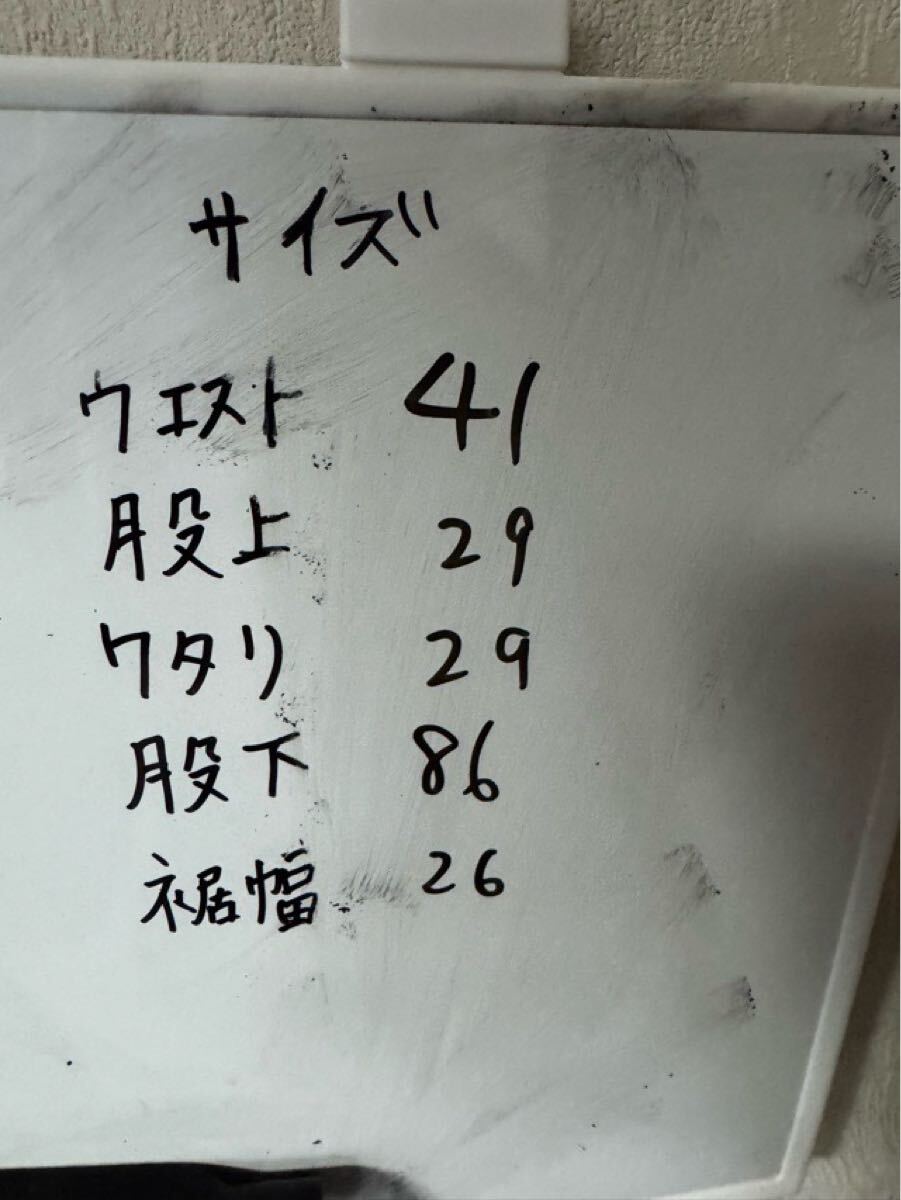 サイズ
ウエスト 41
股上 29
ワタリ 29
股下 86
裾幅 26